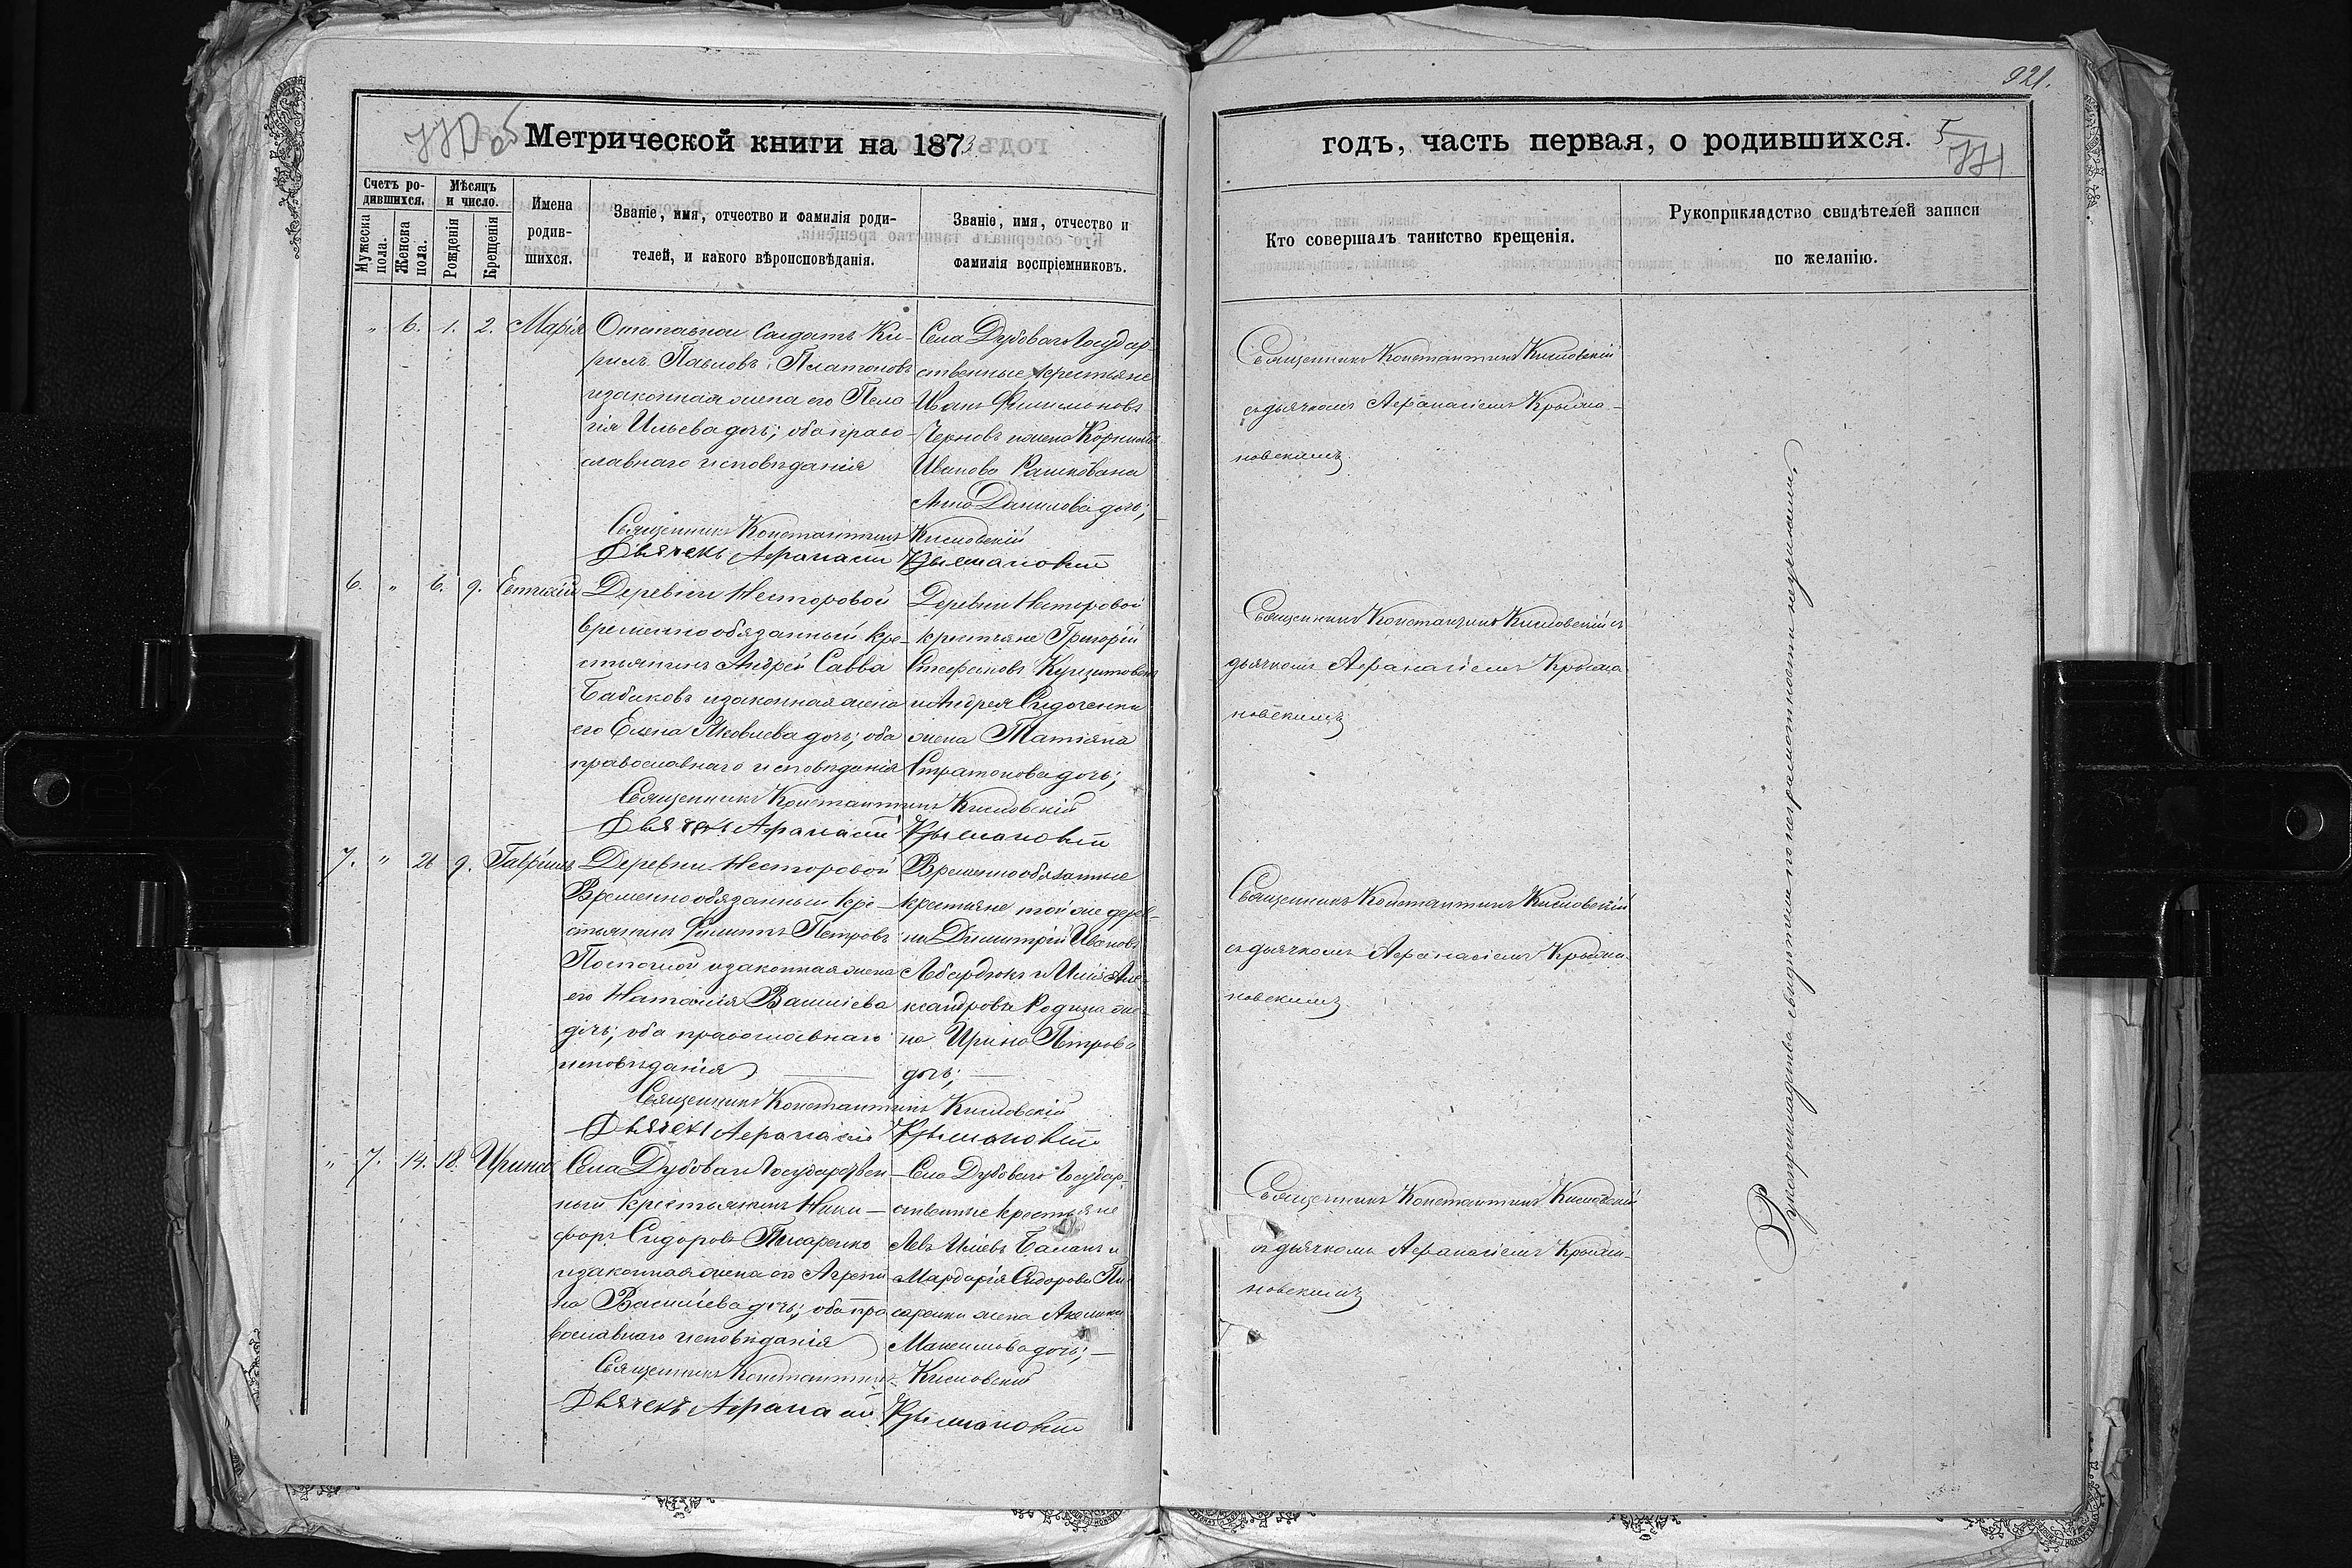 921.
Метрической книги на 1873
годъ, часть первая, о родившихся.
5
771
Счетъ родившихся.
Мужеска пола.
Женска пола.
Мѣсяцъ и число.
Рожденія
Крещенія
Имена родившихся.
Званіе, имя, отчество и фамилія родителей, и какого вѣроисповѣданія.
Званіе, имя, отчество и фамилія воспріемниковъ.
Кто совершалъ таинство крещенія.
Рукоприкладство свидѣтелей записи по желанію.
" 6. 1. 2. Марія
Отставной Солдатъ Ки-
рилъ Павловъ Платоновъ
и законная жена его Пела
гія Ильева дочь; оба право-
славнаго исповѣданія
Села Дубоваго Государ-
ственные крестьяне
Иванъ Филимоновъ
Черновъ и жена Корнилія
Иванова Рашкована
Анна Данилова дочь;
Священникъ Константинъ Кисловскій
Дьячекъ Афанасій Крыжановскій
Священникъ Константинъ Кисловскій
съ дьячкомъ Афанасіемъ Крыжа-
новскимъ.
6. " 6. 9. Евтихій
Деревни Несторовой
временнообязанный кре-
стьянинъ Андрей Савва
Бабиковъ и законная жена
его Елена Яковлева дочь; оба
православнаго исповѣданія
Деревни Несторовой
крестьяне Григорій
Стефановъ
и Андрея Сидоченки
жена Татіяна
Стратонова дочь;
Священникъ Константинъ Кисловскій
Дьячекъ Афанасій Крыжановскій
Священникъ Константинъ Кисловскій съ
дьячкомъ Афанасіемъ Крыжа
новскимъ
7. " 26 9. Гавріилъ
Деревни Несторовой
Временнообязанный кре-
стьянинъ Филиппъ Петровъ
и законная жена
его Наталія Василіева
дочь; оба православнаго
исповѣданія
Временнообязанные
крестьяне той же дерев-
ни Димитрій Ивановъ
и Илія Але-
ксандрова Родина же-
на Ирина Петрова
дочь;
Священникъ Константинъ Кисловскій
Дьячекъ Афанасій Крыжановскій
Священникъ Константинъ Кисловскій
съ дьячкомъ Афанасіемъ Крыжа-
новскимъ
" 7. 14. 18. Ирина
Села Дубоваго Государствен-
ный крестьянинъ Ники-
форъ Сидоровъ Писаренко
и законная жена его Агрепи
на Василіева дочь; оба пра
вославнаго исповѣданія
Села Дубоваго Государ-
ственные крестьяне
Левъ Иліевъ Баланъ и
Мардарія Сидорова Пи-
саренки жена Акелина
Максимова дочь;
Священникъ Константинъ Кисловскій
Дьячекъ Афанасій Крыжановскій
Священникъ Константинъ Кисловскій
съ дьячкомъ Афанасіемъ Крыжа-
новскимъ
Рукоприкладства свидѣтели по неграмотности неучинили.